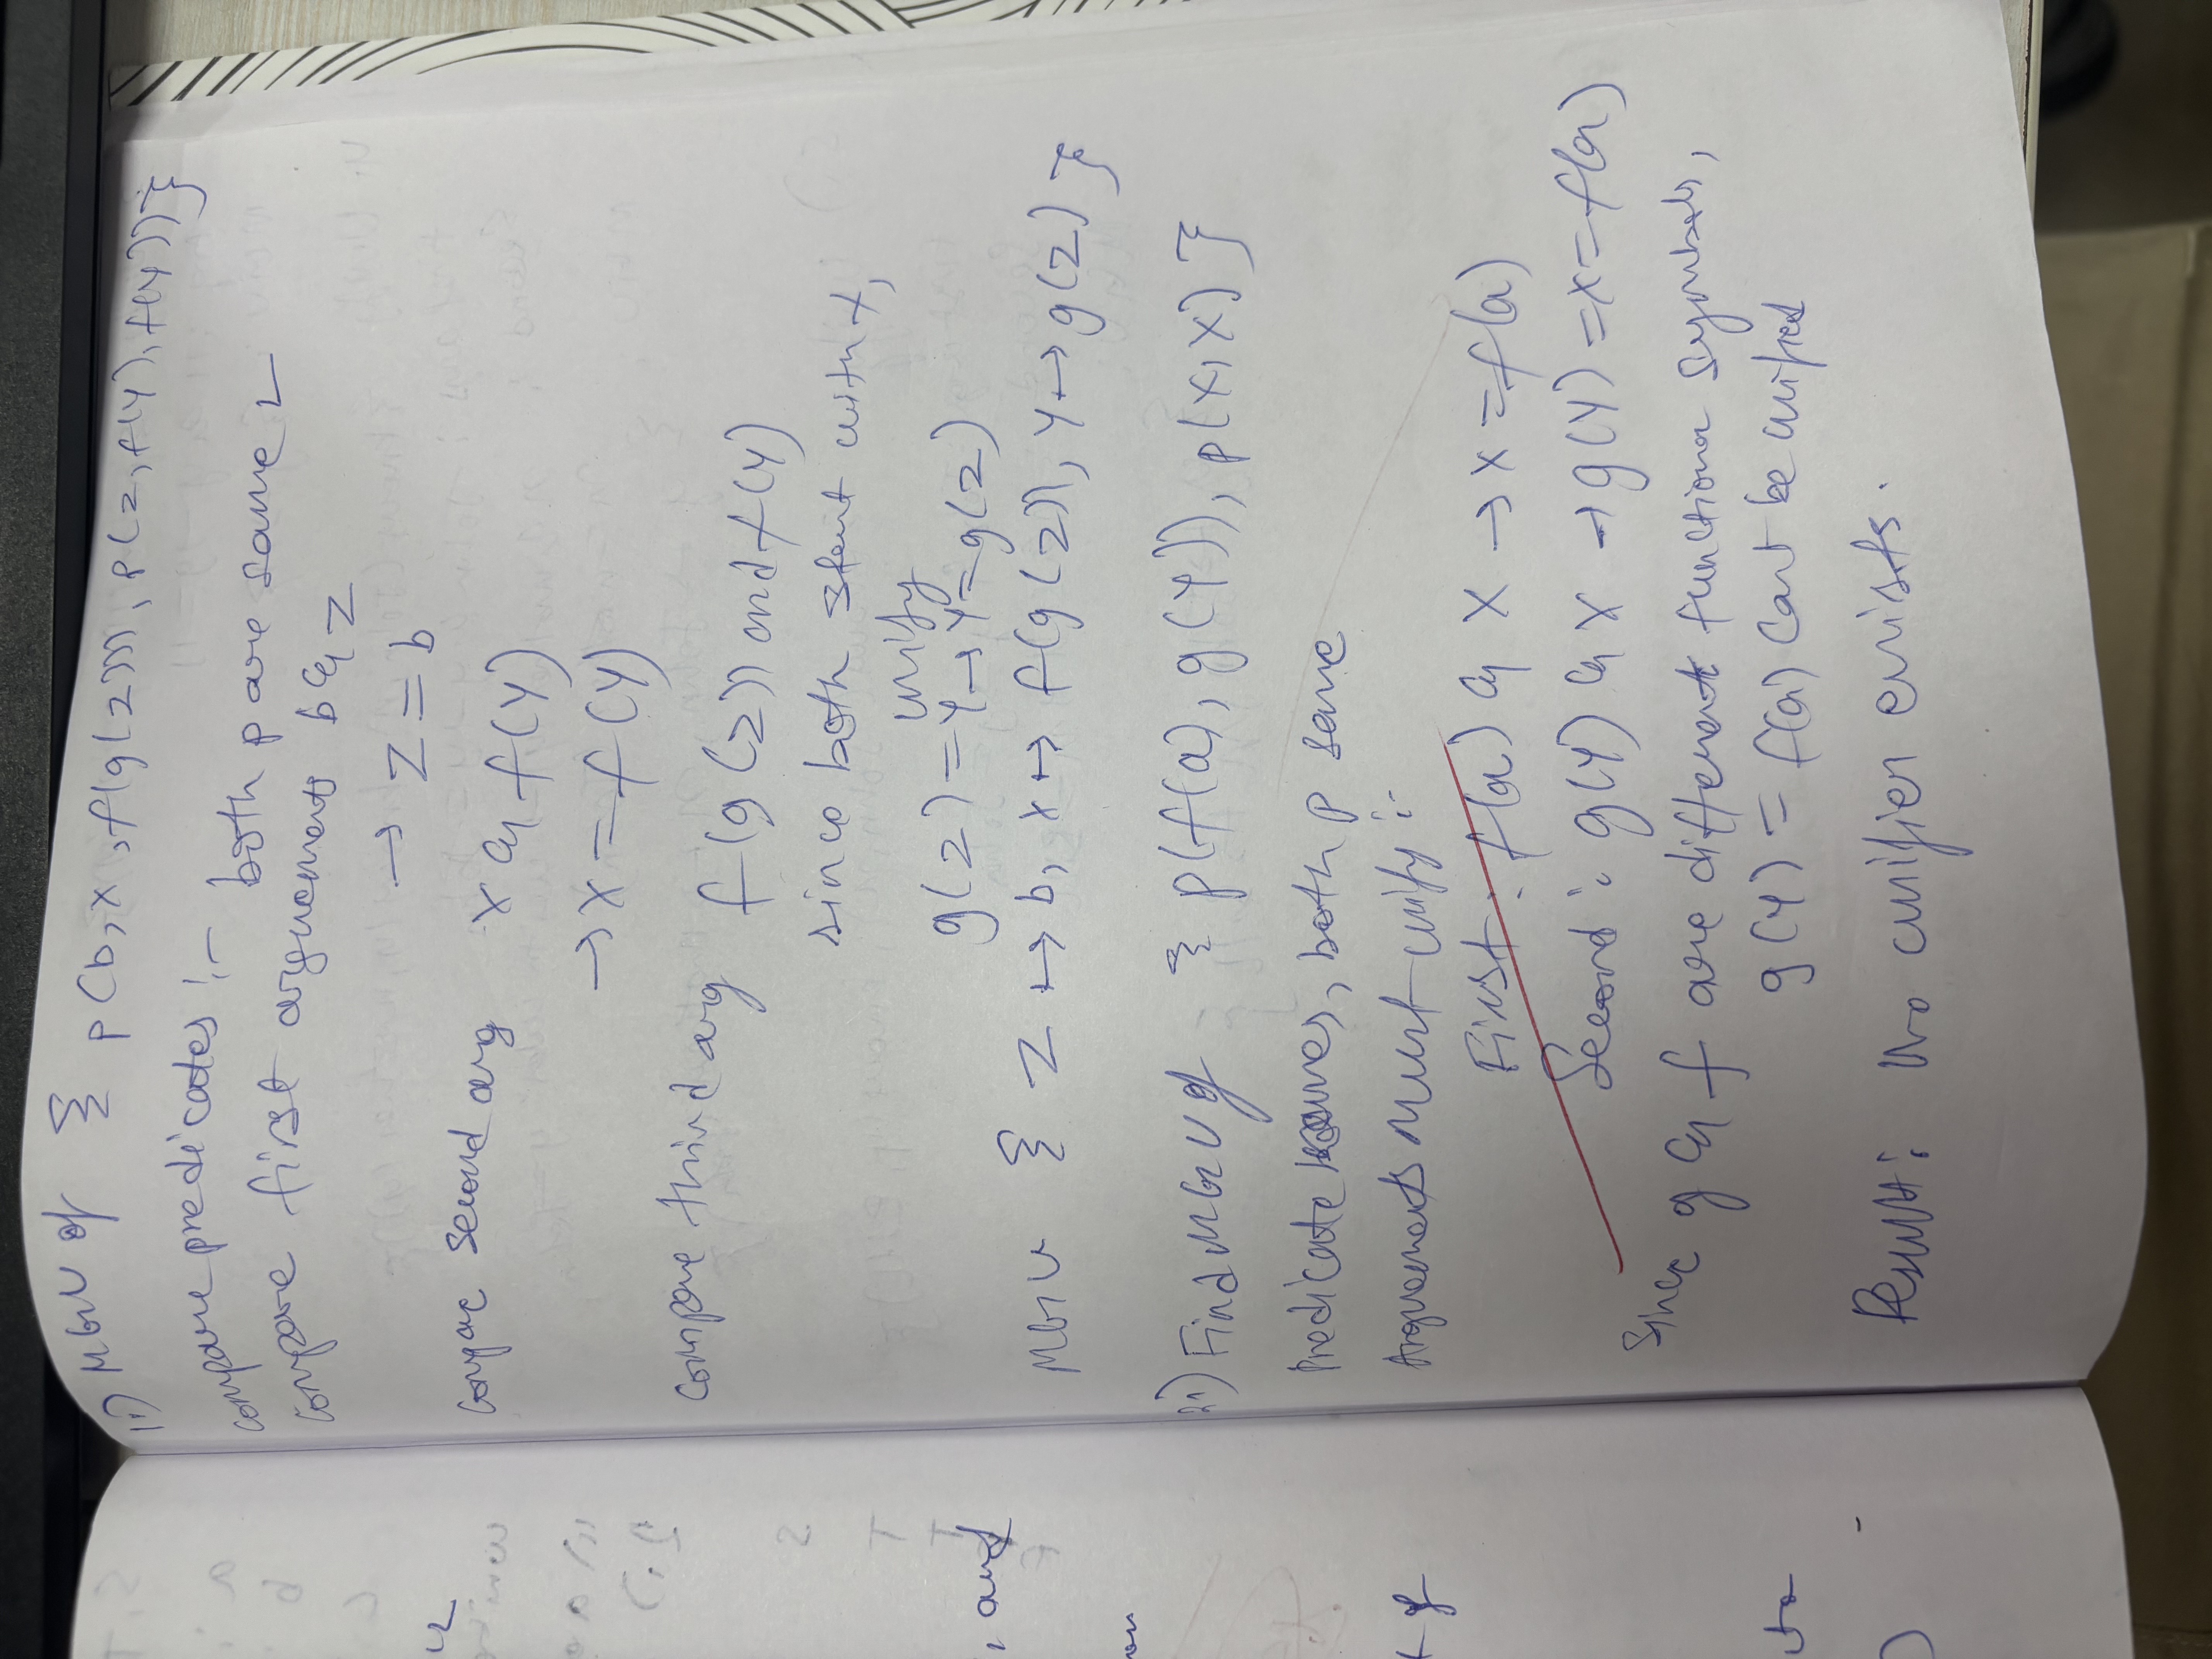 1.) MGU of { p(b, x, f(g(z))), p(z, f(y), f(y)) }
compare predicates :- both p are same
compare first arguements b & z
→ z = b
compare second arg x & f(y)
→ x = f(y)
compare third arg f(g(z)) and f(y)
since both start with f,
unify
g(z) = y → y = g(z)
MGU { z ↦ b, x ↦ f(g(z)), y ↦ g(z) }
2.) Find MGU of { p(f(a), g(y)), p(x, x) }
Predicate names, both p same
Arguements must unify :-
First : f(a) & x → x = f(a)
Second : g(y) & x → g(y) = x = f(a)
Since g & f are different function symbols,
g(y) = f(a) cant be unified
Result : No unifier exists.
, and